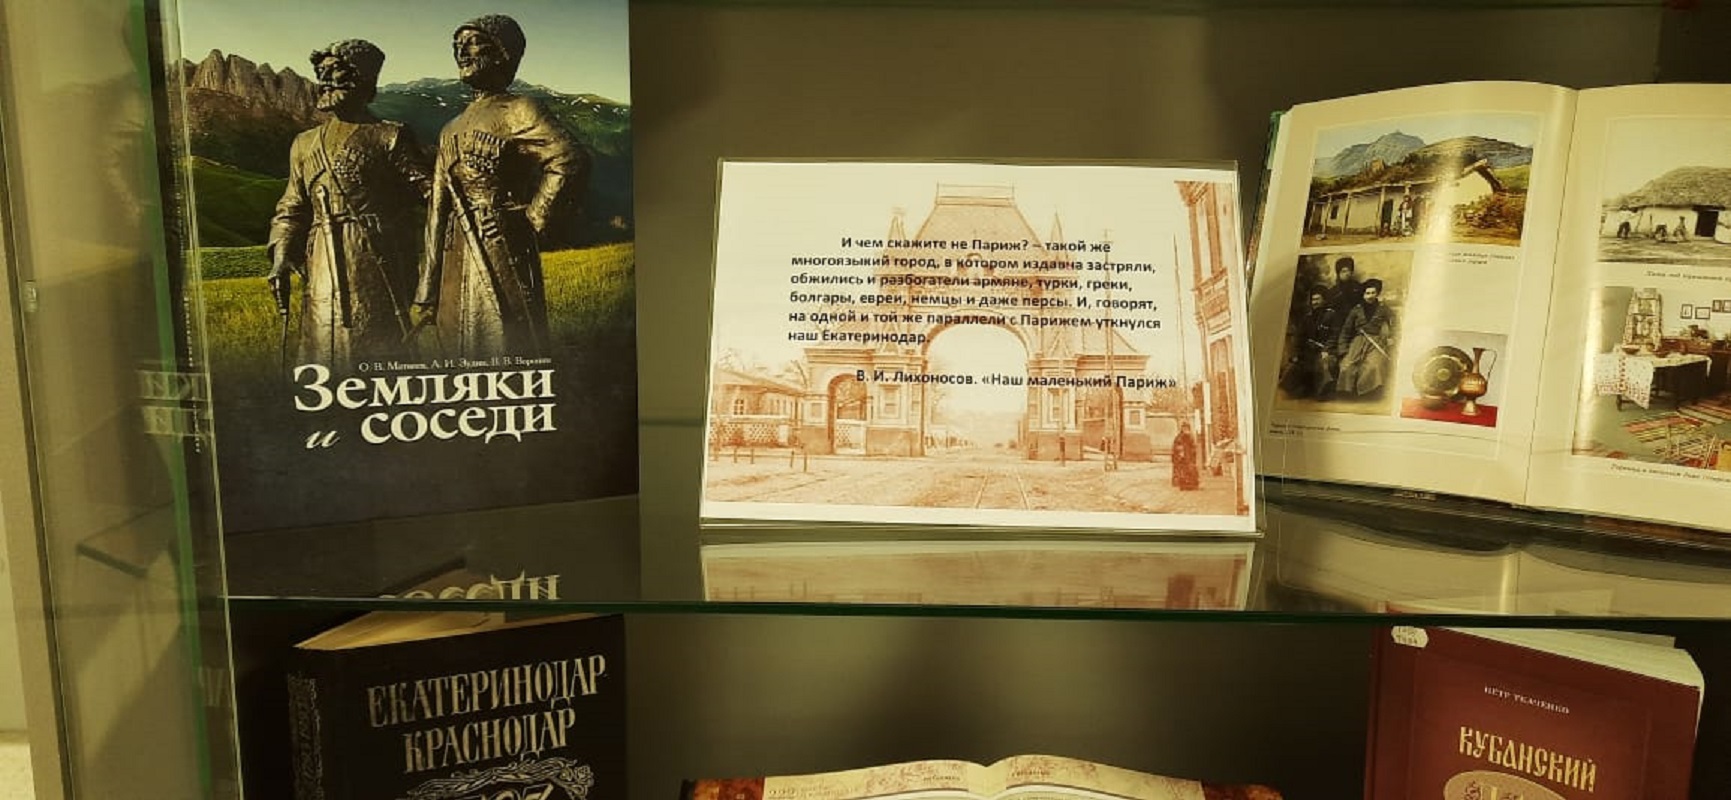 О. В. Матвеев, А. И. Зудин, В. В. Воронин
Земляки
и соседи
И чем скажите не Париж? – такой же
многоязыкий город, в котором издавна застряли,
обжились и разбогатели армяне, турки, греки,
болгары, евреи, немцы и даже персы. И, говорят,
на одной и той же параллели с Парижем уткнулся
наш Екатеринодар.
В. И. Лихоносов. «Наш маленький Париж»
ЕКАТЕРИНОДАР
КРАСНОДАР
ПЕТР ТКАЧЕНКО
КУБАНСКИЙ